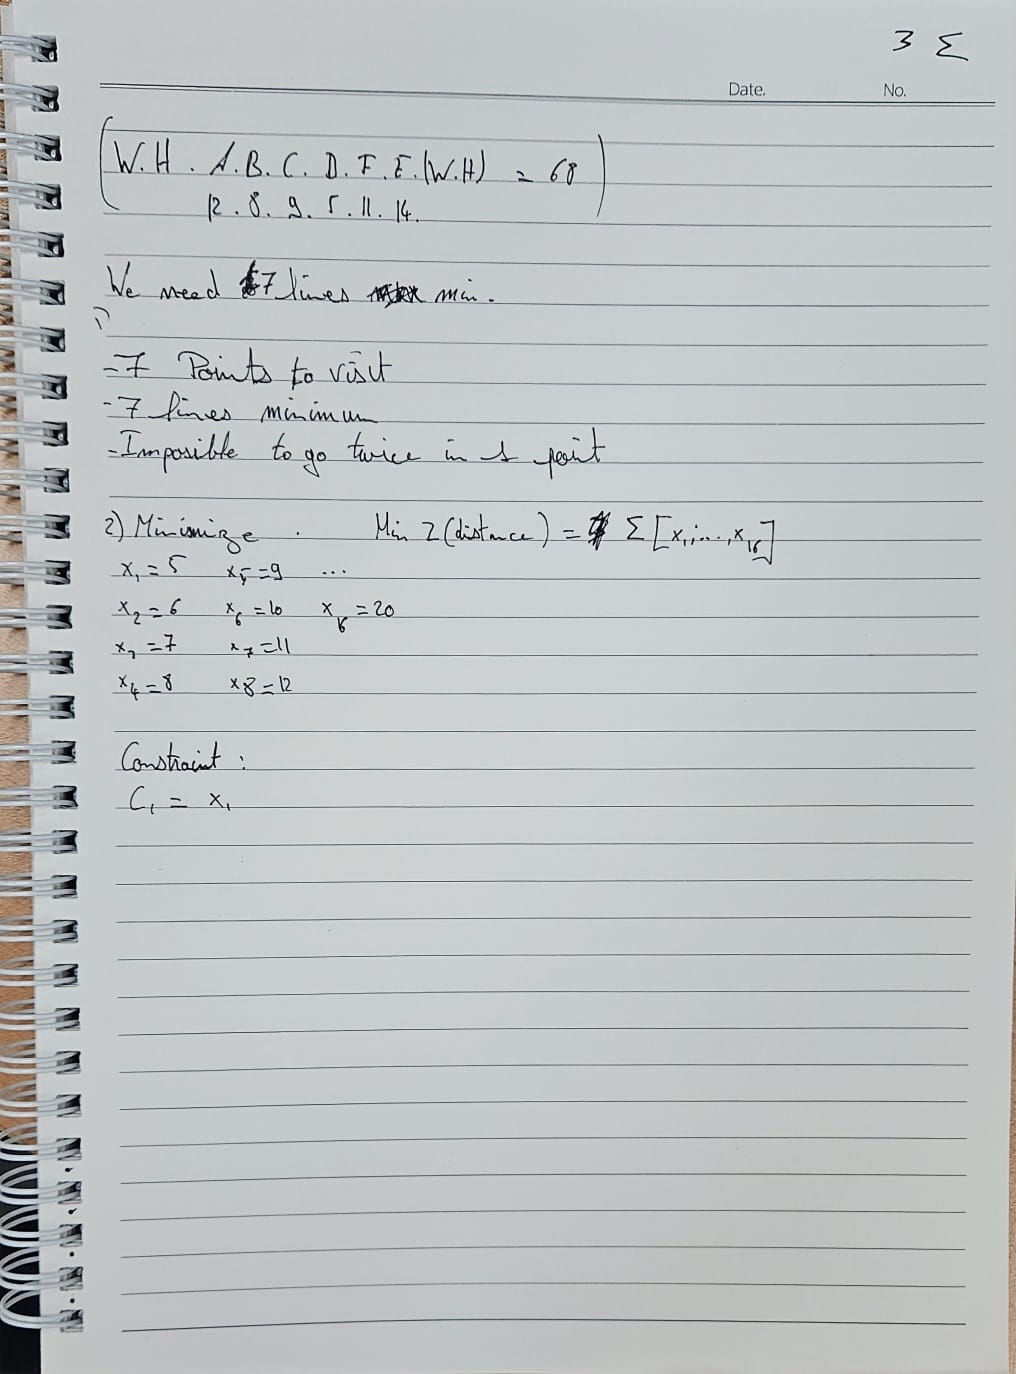 3 Σ
Date. No.
(W.H . A.B. C. D. F. E. (W.H) = 68)
12 . 8 . 9 . 5 . 11 . 14.
We need 7 lines min.
1)
- 7 Points to visit
- 7 lines minimum
- Imposible to go twice in 1 point
2) Minimize . Min Z (distance) = Σ [x₁;...,x₁₆]
x₁ = 5 x₅ = 9 ...
x₂ = 6 x₆ = 10 x₁₆ = 20
x₃ = 7 x₇ = 11
x₄ = 8 x8 = 12
Constraint :
C₁ = x₁